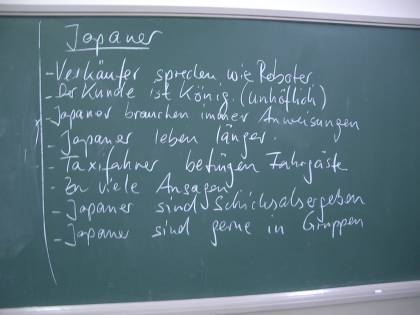 Japaner
- Verkäufer sprechen wie Roboter
- Der Kunde ist König. (unhöflich)
- Japaner brauchen immer Anweisungen
- Japaner leben länger.
- Taxifahrer betrügen Fahrgäste
- Zu viele Ansagen
- Japaner sind Schicksalsergeben
- Japaner sind gerne in Gruppen